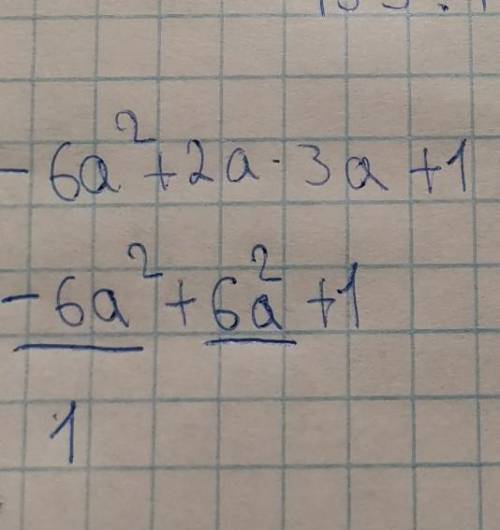 - 6a² + 2a · 3a + 1
- 6a² + 6a² + 1
1